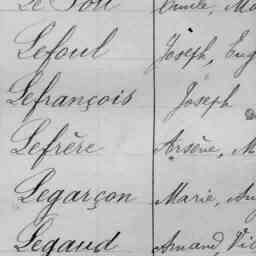 Lefoul Joseph, Eug
Lefrançois Joseph
Lefrère Arsène, M
Legarçon Marie, Au
Legaud Amand, Vi